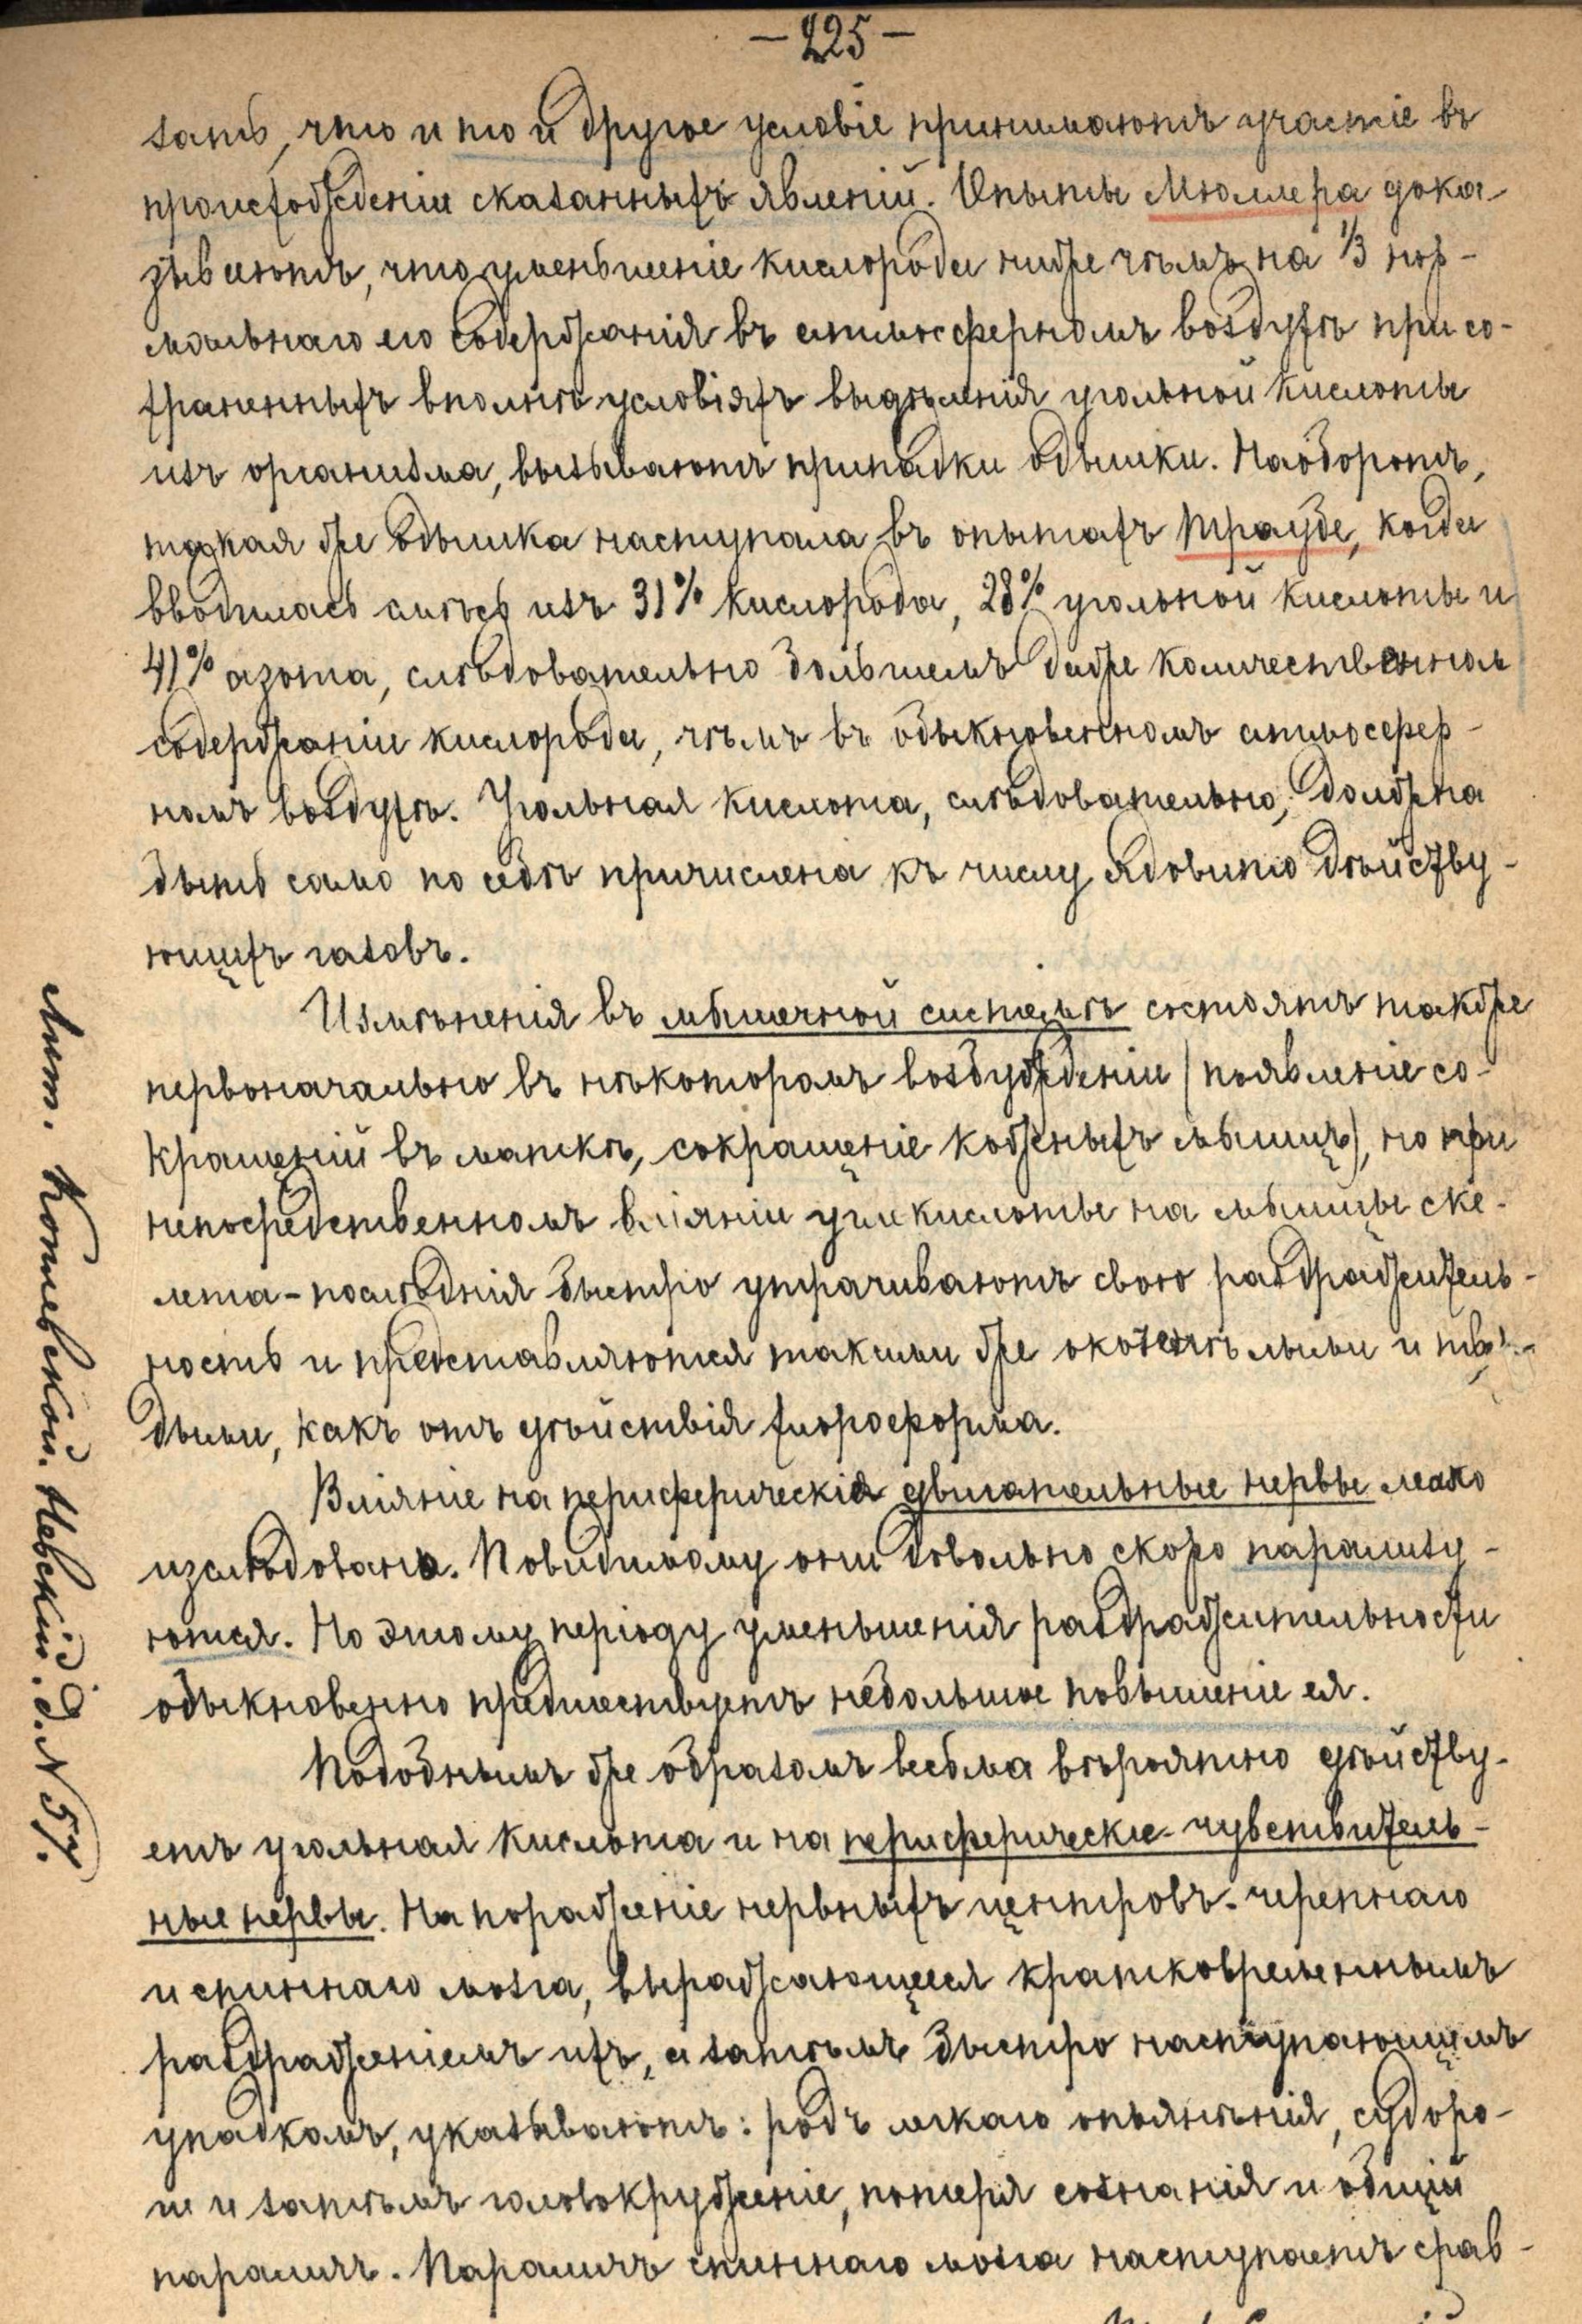 — 225 —
зать, что и то и другое условіе принимаютъ участіе въ
происхожденіи сказанныхъ явленій. Опыты Мюллера дока-
зываютъ, что уменьшеніе кислорода ниже чѣмъ на 1/3 нор-
мальнаго его содержанія въ атмосферномъ воздухѣ при со-
храненныхъ вполнѣ условіяхъ выдѣленія угольной кислоты
изъ организма, вызываютъ припадки одышки. Наоборотъ,
такая же одышка наступала въ опытахъ Траубе, когда
вводилась смѣсь изъ 31% кислорода, 28% угольной кислоты и
41% азота, слѣдовательно большемъ даже количественномъ
содержаніи кислорода, чѣмъ въ обыкновенномъ атмосфер-
номъ воздухѣ. Угольная кислота, слѣдовательно, должна
быть само по себѣ причислена къ числу ядовито дѣйству-
ющихъ газовъ.
Измѣненія въ мышечной системѣ состоятъ также
первоначально въ нѣкоторомъ возбужденіи (появленіе со-
кращеній въ маткѣ, сокращеніе кожныхъ мышцъ), но при
непосредственномъ вліяніи угле кислоты на мышцы ске-
лета - послѣднія быстро утрачиваютъ свою раздражитель-
ность и представляются такими же окоченѣлыми и твер-
дыми, какъ отъ дѣйствія хлороформа.
Вліяніе на периферическія двигательные нервы мало
изслѣдовано. Повидимому они довольно скоро парализу-
ются. Но этому періоду уменьшенія раздражительности
обыкновенно предшествуетъ небольшое повышеніе ея.
Подобнымъ же образомъ весьма вѣроятно дѣйству-
етъ угольная кислота и на периферическіе чувствитель-
ные нервы. На пораженіе нервныхъ центровъ - черепнаго
и спиннаго мозга, выражающееся кратковременнымъ
раздраженіемъ ихъ, а затѣмъ быстро наступающемъ
упадкомъ, указываютъ: родъ легкаго опьянѣнія, судоро-
ги и затѣмъ головокруженіе, потеря сознанія и общій
параличъ. Параличъ спиннаго мозга наступаетъ срав-
Лит. Котлевской. Невскій. д. N 57.